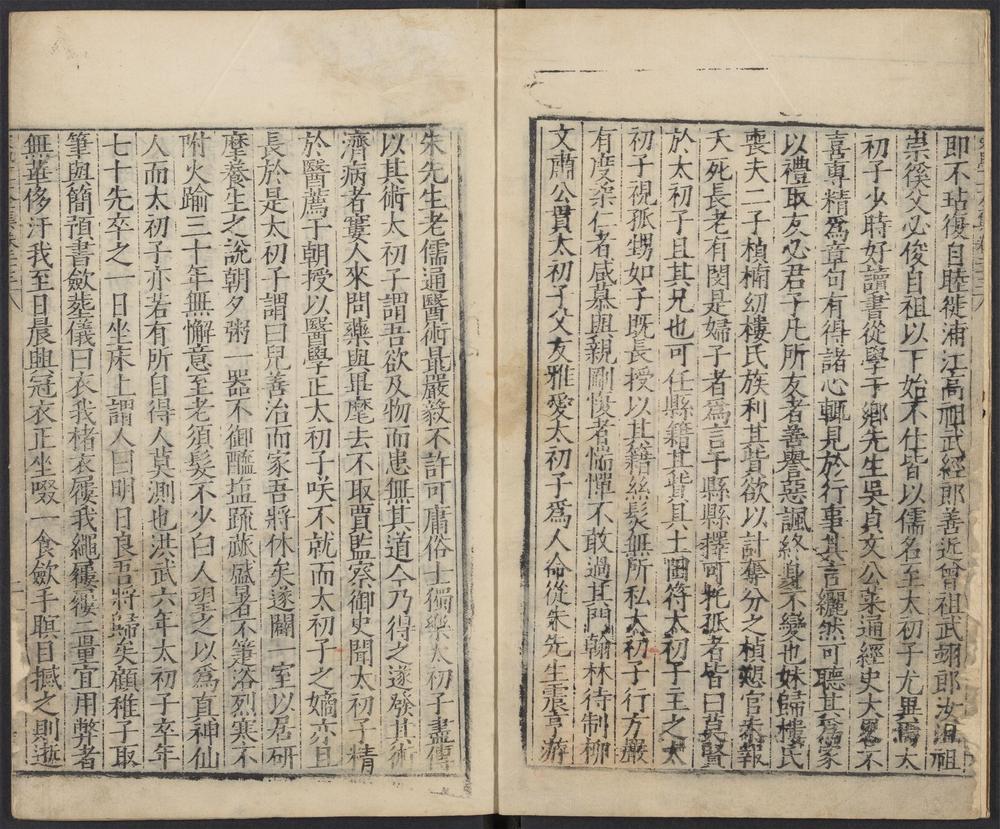 即不玷復自睦徙浦江高祖武經郎善近曾祖武翊郎汝
祖崇俟父必俊自祖以下始不仕皆以儒名至太初子尤異焉太
初子少時好讀書從學于鄉先生吳貞文公萊通經史大畧不
喜專精爲章句有得諸心輒見於行事其言纚然可聽其爲家
以禮取友必君子凡所友者善譽惡諷終身不變也妹歸樓氏
喪夫二子楨楠幼樓氏族利其貲欲以計奪分之楨愬官未報
夭死長老有閔是婦子者爲言于縣縣擇可托孤者皆曰莫賢
於太初子且其兄也可任縣籍其貲具土田符太初子主之太
初子視孤甥如子既長授以其籍絲髮無所私太初子行方嚴
有度柔仁者咸慕與親剛愎者惴憚不敢過其門翰林待制柳
文肅公貫太初子父友雅愛太初子爲人命從朱先生震亨游
朱先生老儒通醫術最嚴毅不許可庸俗士獨樂太初子盡傳
以其術太初子謂吾欲及物而患無其道今乃得之遂發其術
濟病者窶人來問藥與畢麾去不取賈監察御史聞太初子精
於醫薦于朝授以醫學正太初子咲不就而太初子之嫡亦且
長於是太初子謂曰兒善治而家吾將休矣遂闢一室以居研
摩養生之說朝夕粥一器不御醯塩蔬蓏盛暑不箑浴烈寒不
附火踰三十年無懈意至老須髮不少白人望之以爲眞神仙
人而太初子亦若有所自得人莫測也洪武六年太初子卒年
七十先卒之一日坐床上謂人曰明日良吾將歸矣顧稚子取
筆與簡預書歛塟儀曰衣我楮衣屨我繩屨屨二量宜用弊者
無華侈汙我至日晨興冠衣正坐啜一食歛手瞑目撼之則逝